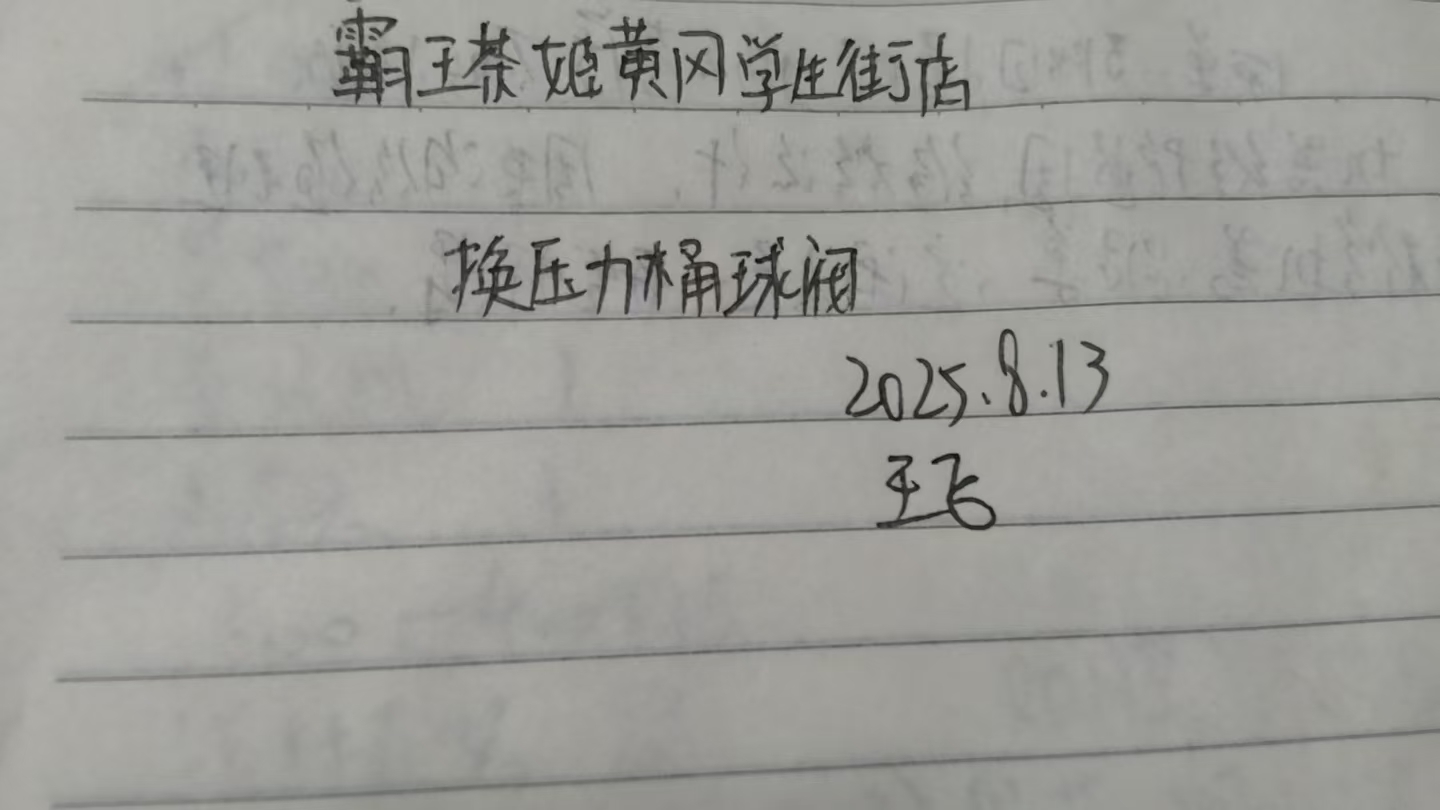 霸王茶姬黄冈学生街店
换压力桶球阀
2025.8.13
王飞